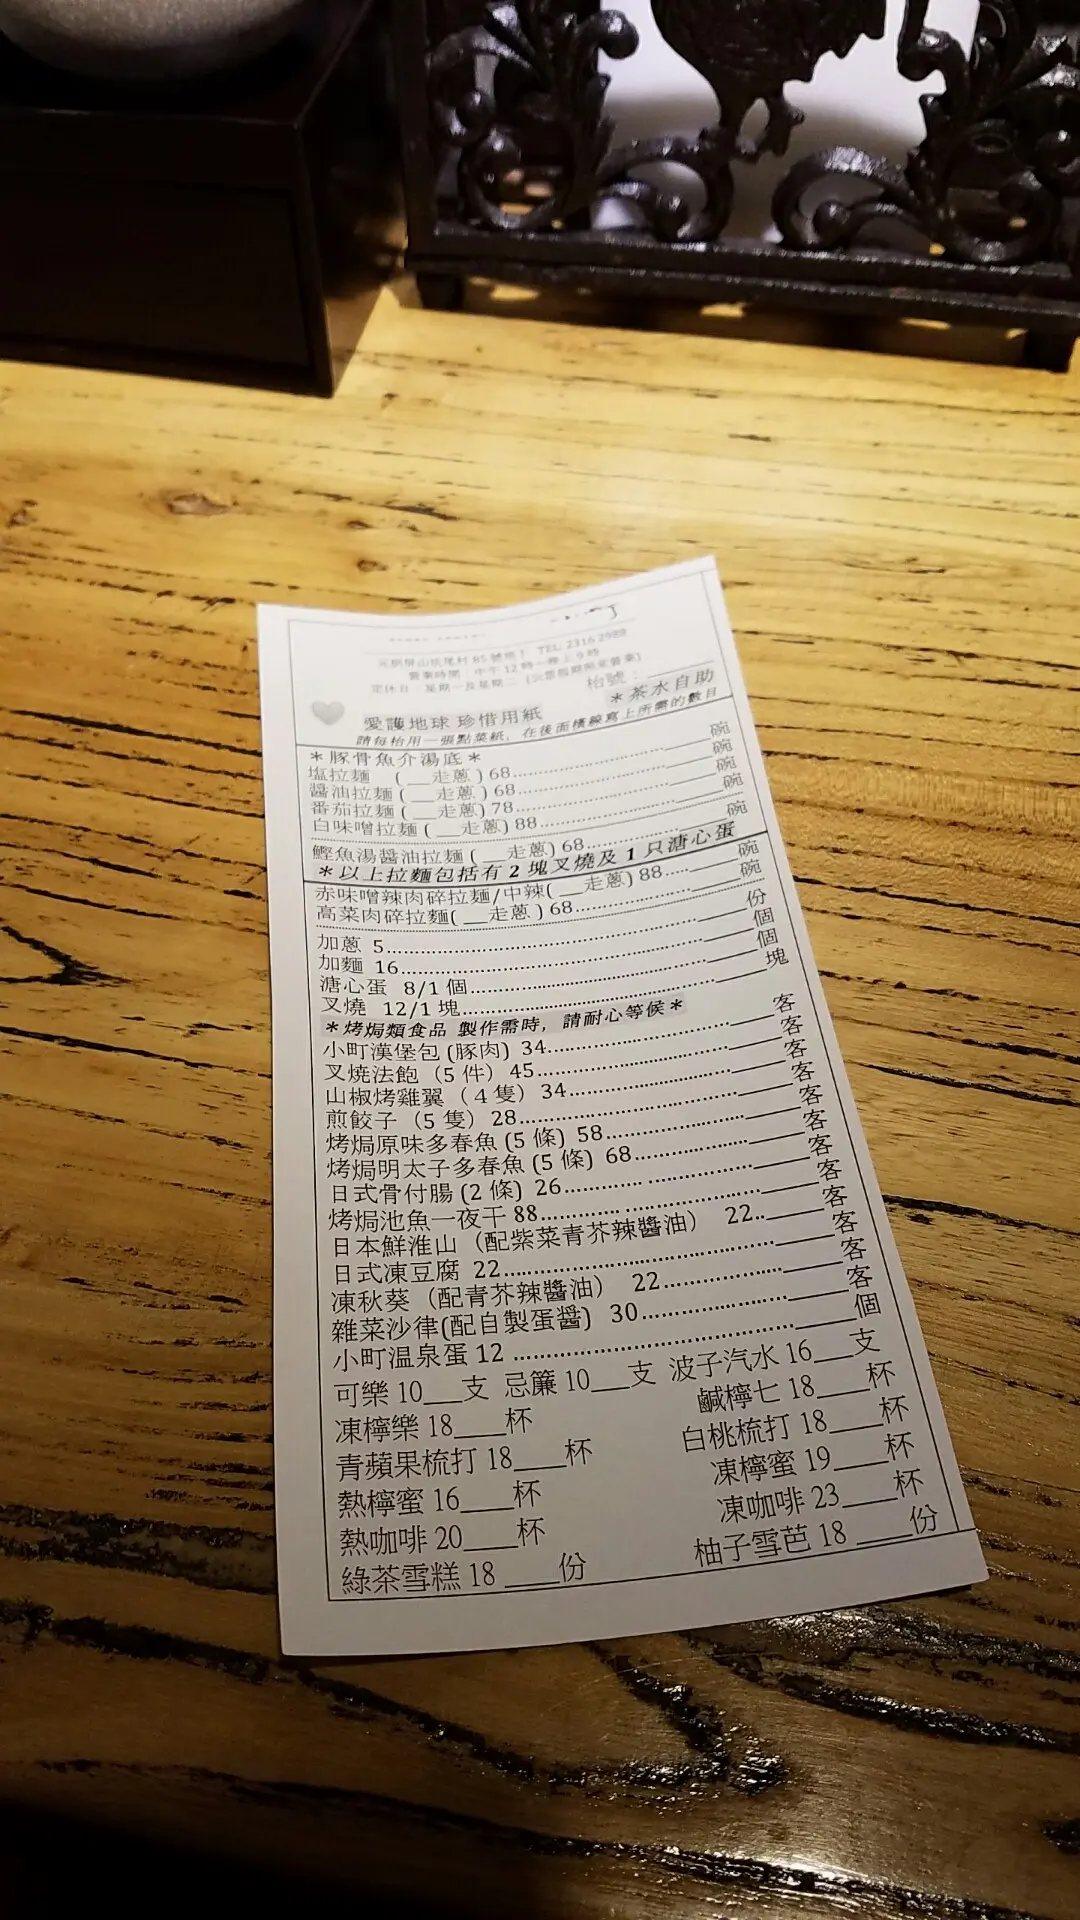 町
元朗屏山坑尾村 85 號地下 TEL: 2316 2988
營業時間 中午 12 時～晚上 9 時
定休日 星期一及星期二 (公眾假期照常營業)
枱號：
*茶水自助
愛護地球 珍惜用紙
請每枱用一張點菜紙，在後面橫線寫上所需的數目
*豚骨魚介湯底*
塩拉麵 (__走蔥) 68..............______碗
醬油拉麵 (__走蔥) 68..............______碗
番茄拉麵 (__走蔥) 78..............______碗
白味噌拉麵 (__走蔥) 88..............______碗
鰹魚湯醬油拉麵 (__走蔥) 68..............______碗
*以上拉麵包括有 2 塊叉燒及 1 只溏心蛋
赤味噌辣肉碎拉麵/中辣(___走蔥) 88.....______碗
高菜肉碎拉麵(__走蔥) 68..............______碗
加蔥 5..............______份
加麵 16..............______個
溏心蛋 8/1 個..............______個
叉燒 12/1 塊..............______塊
*烤焗類食品 製作需時，請耐心等候*
小町漢堡包 (豚肉) 34..............____客
叉燒法飽（5 件）45..............____客
山椒烤雞翼（4 隻）34..............____客
煎餃子（5 隻）28..............____客
烤焗原味多春魚 (5 條) 58..............____客
烤焗明太子多春魚 (5 條) 68..............____客
日式骨付腸 (2 條) 26..............____客
烤焗池魚一夜干 88..............____客
日本鮮淮山（配紫菜青芥辣醬油） 22..____客
日式凍豆腐 22..............____客
凍秋葵（配青芥辣醬油） 22..............____客
雜菜沙律(配自製蛋醬) 30..............____客
小町溫泉蛋 12 ..............____個
可樂 10___支 忌簾 10___支 波子汽水 16___支
凍檸樂 18____杯 鹹檸七 18____杯
青蘋果梳打 18____杯 白桃梳打 18____杯
熱檸蜜 16____杯 凍檸蜜 19____杯
熱咖啡 20____杯 凍咖啡 23____杯
綠茶雪糕 18 ____份 柚子雪芭 18 ____份